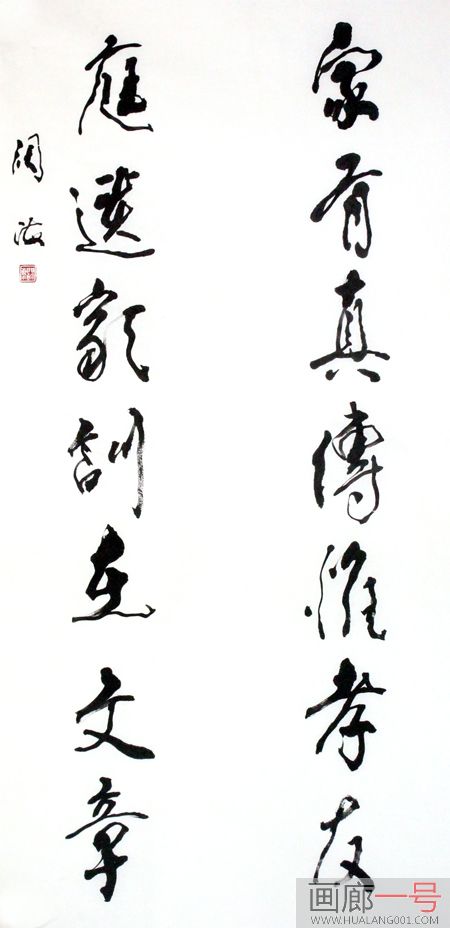 家有真傳惟孝友
庭遺懿訓在文章
周海
画廊一号
WWW.HUALANG001.COM